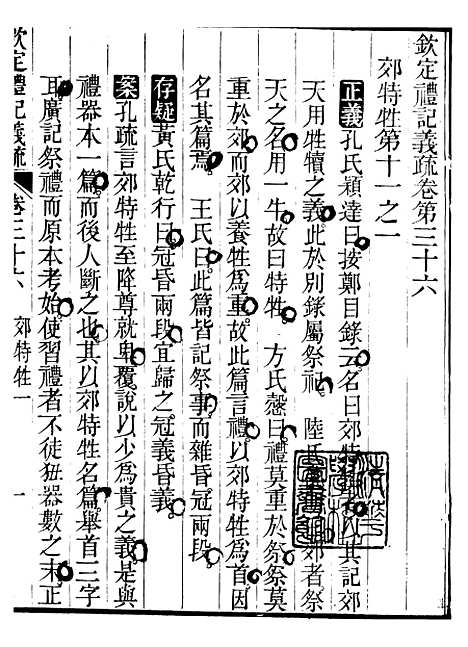 欽定禮記義疏卷第三十六
郊特牲第十一之一
正義孔氏穎達曰按鄭目錄云名曰郊特牲以其記郊
天用牲犢之義此於別錄屬祭祀　陸氏　郊者祭
天之名用一牛故曰特牲　方氏慤曰禮莫重於祭祭莫
重於郊而郊以養牲爲重故此篇言禮以郊特牲爲首因
名其篇焉　王氏曰此篇皆記祭事而雜昏冠兩段
存疑黃氏乾行曰冠昏兩段宜歸之冠義昏義
案孔疏言郊特牲至降尊就卑覆說以少爲貴之義是與
禮器本一篇而後人斷之也其以郊特牲名篇舉首三字
耳廣記祭禮而原本考始使習禮者不徒狃器數之末正
欽定禮記義疏　卷三十六　郊特牲一　一